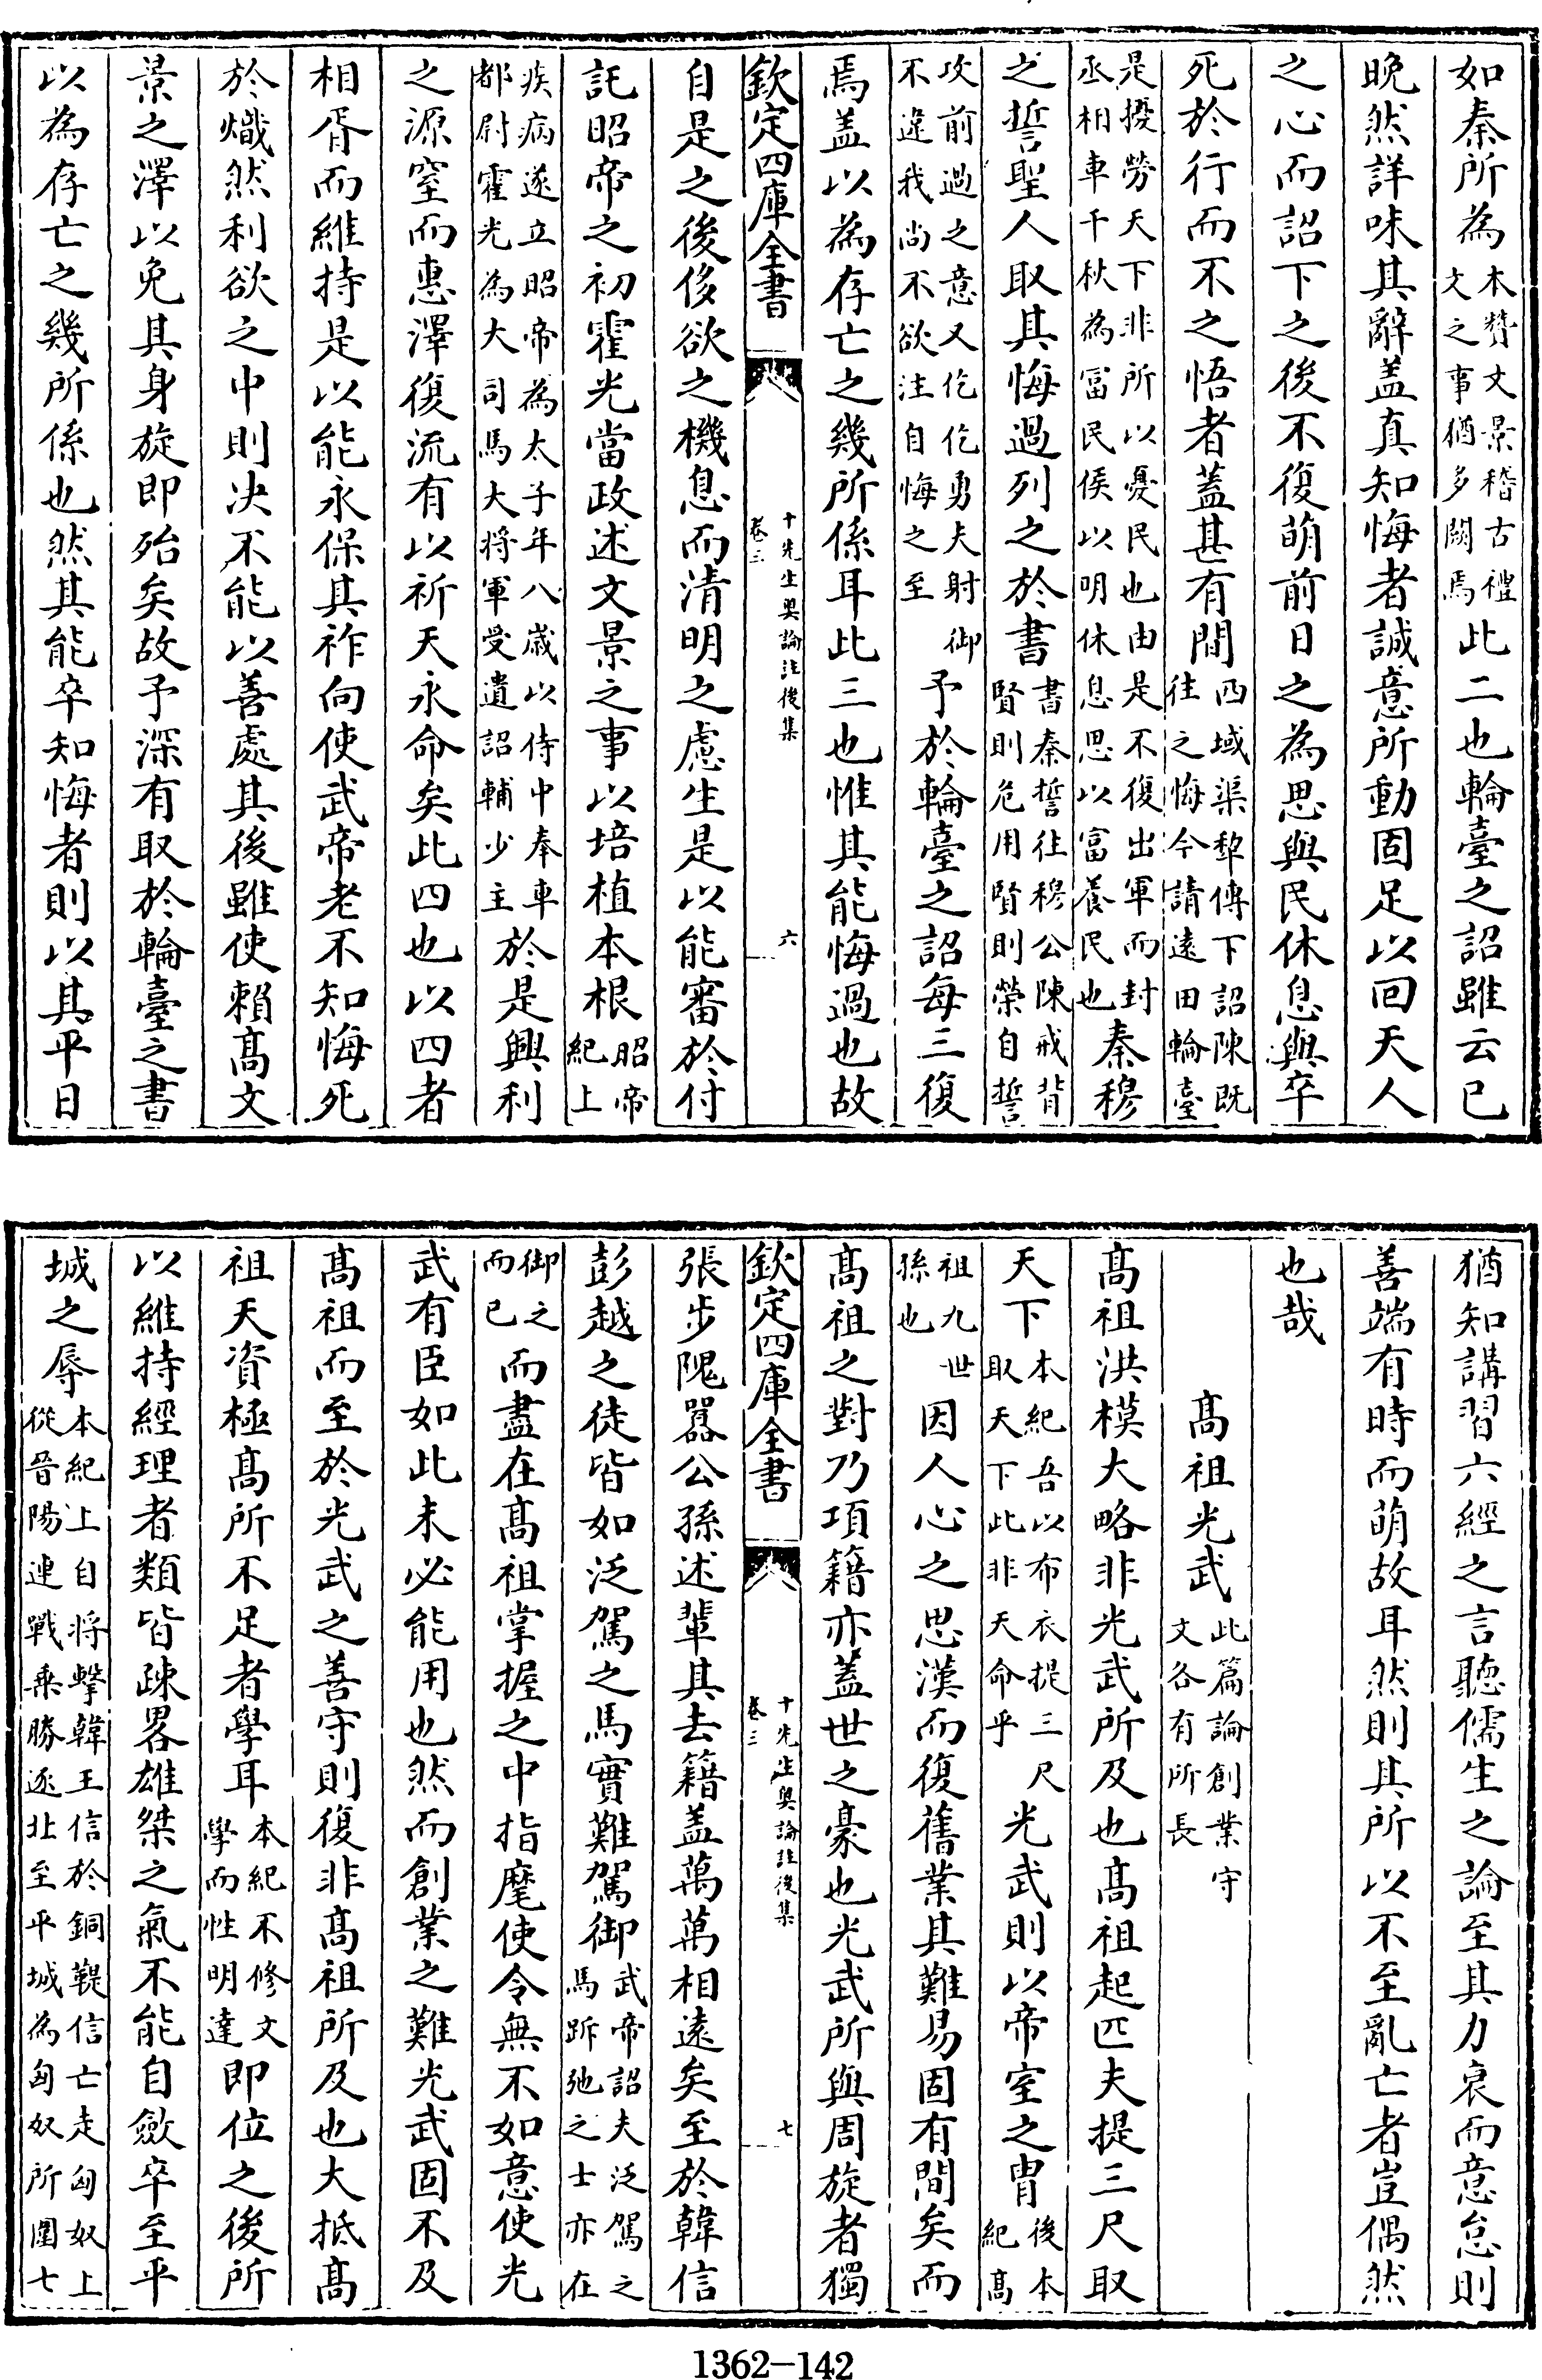 如秦所為本贊文景稽古禮文之事猶多闕焉此二也輪臺之詔雖云已
晚然詳味其辭盖真知悔者誠意所動固足以回天人
之心而詔下之後不復萌前日之為思與民休息與卒
死於行而不之悟者蓋甚有間西域渠犂傳下詔陳既往之悔今請遠田輪臺
是擾勞天下非所以憂民也由是不復出軍而封丞相車千秋為富民侯以明休息思以富養民也秦穆
之誓聖人取其悔過列之於書書秦誓往穆公陳戒背賢則危用賢則榮自誓
攻前過之意又仡仡勇夫射御不違我尚不欲注自悔之至予於輪臺之詔每三復
焉盖以為存亡之幾所係耳此三也惟其能悔過也故
欽定四庫全書 十先生奧論註後集 卷三 六
自是之後侈欲之機息而清明之慮生是以能審於付
託昭帝之初霍光當政述文景之事以培植本根昭帝紀上
疾病遂立昭帝為太子年八歲以侍中奉車都尉霍光為大司馬大將軍受遺詔輔少主於是興利
之源窒而惠澤復流有以祈天永命矣此四也以四者
相胥而維持是以能永保其祚向使武帝老不知悔死
於熾然利欲之中則決不能以善處其後雖使賴高文
景之澤以免其身旋即殆矣故予深有取於輪臺之書
以為存亡之幾所係也然其能卒知悔者則以其平日
猶知講習六經之言聽儒生之論至其力衰而意怠則
善端有時而萌故耳然則其所以不至亂亡者豈偶然
也哉
高祖光武此篇論創業守文各有所長
高祖洪模大略非光武所及也高祖起匹夫提三尺取
天下本紀吾以布衣提三尺取天下此非天命乎光武則以帝室之胄後本紀高
祖九世孫也因人心之思漢而復舊業其難易固有間矣而
高祖之對乃項籍亦蓋世之豪也光武所與周旋者獨
欽定四庫全書 十先生奧論註後集 卷三 七
張步隗囂公孫述輩其去籍盖萬萬相遠矣至於韓信
彭越之徒皆如泛駕之馬實難駕御武帝詔夫泛駕之馬跅弛之士亦在
御之而已而盡在高祖掌握之中指麾使令無不如意使光
武有臣如此未必能用也然而創業之難光武固不及
高祖而至於光武之善守則復非高祖所及也大抵高
祖天資極高所不足者學耳本紀不修文學而性明達即位之後所
以維持經理者類皆疎畧雄桀之氣不能自斂卒至平
城之辱本紀上自將擊韓王信於銅鞮信亡走匈奴上從晉陽連戰乘勝逐北至平城為匈奴所圍七
1362-142